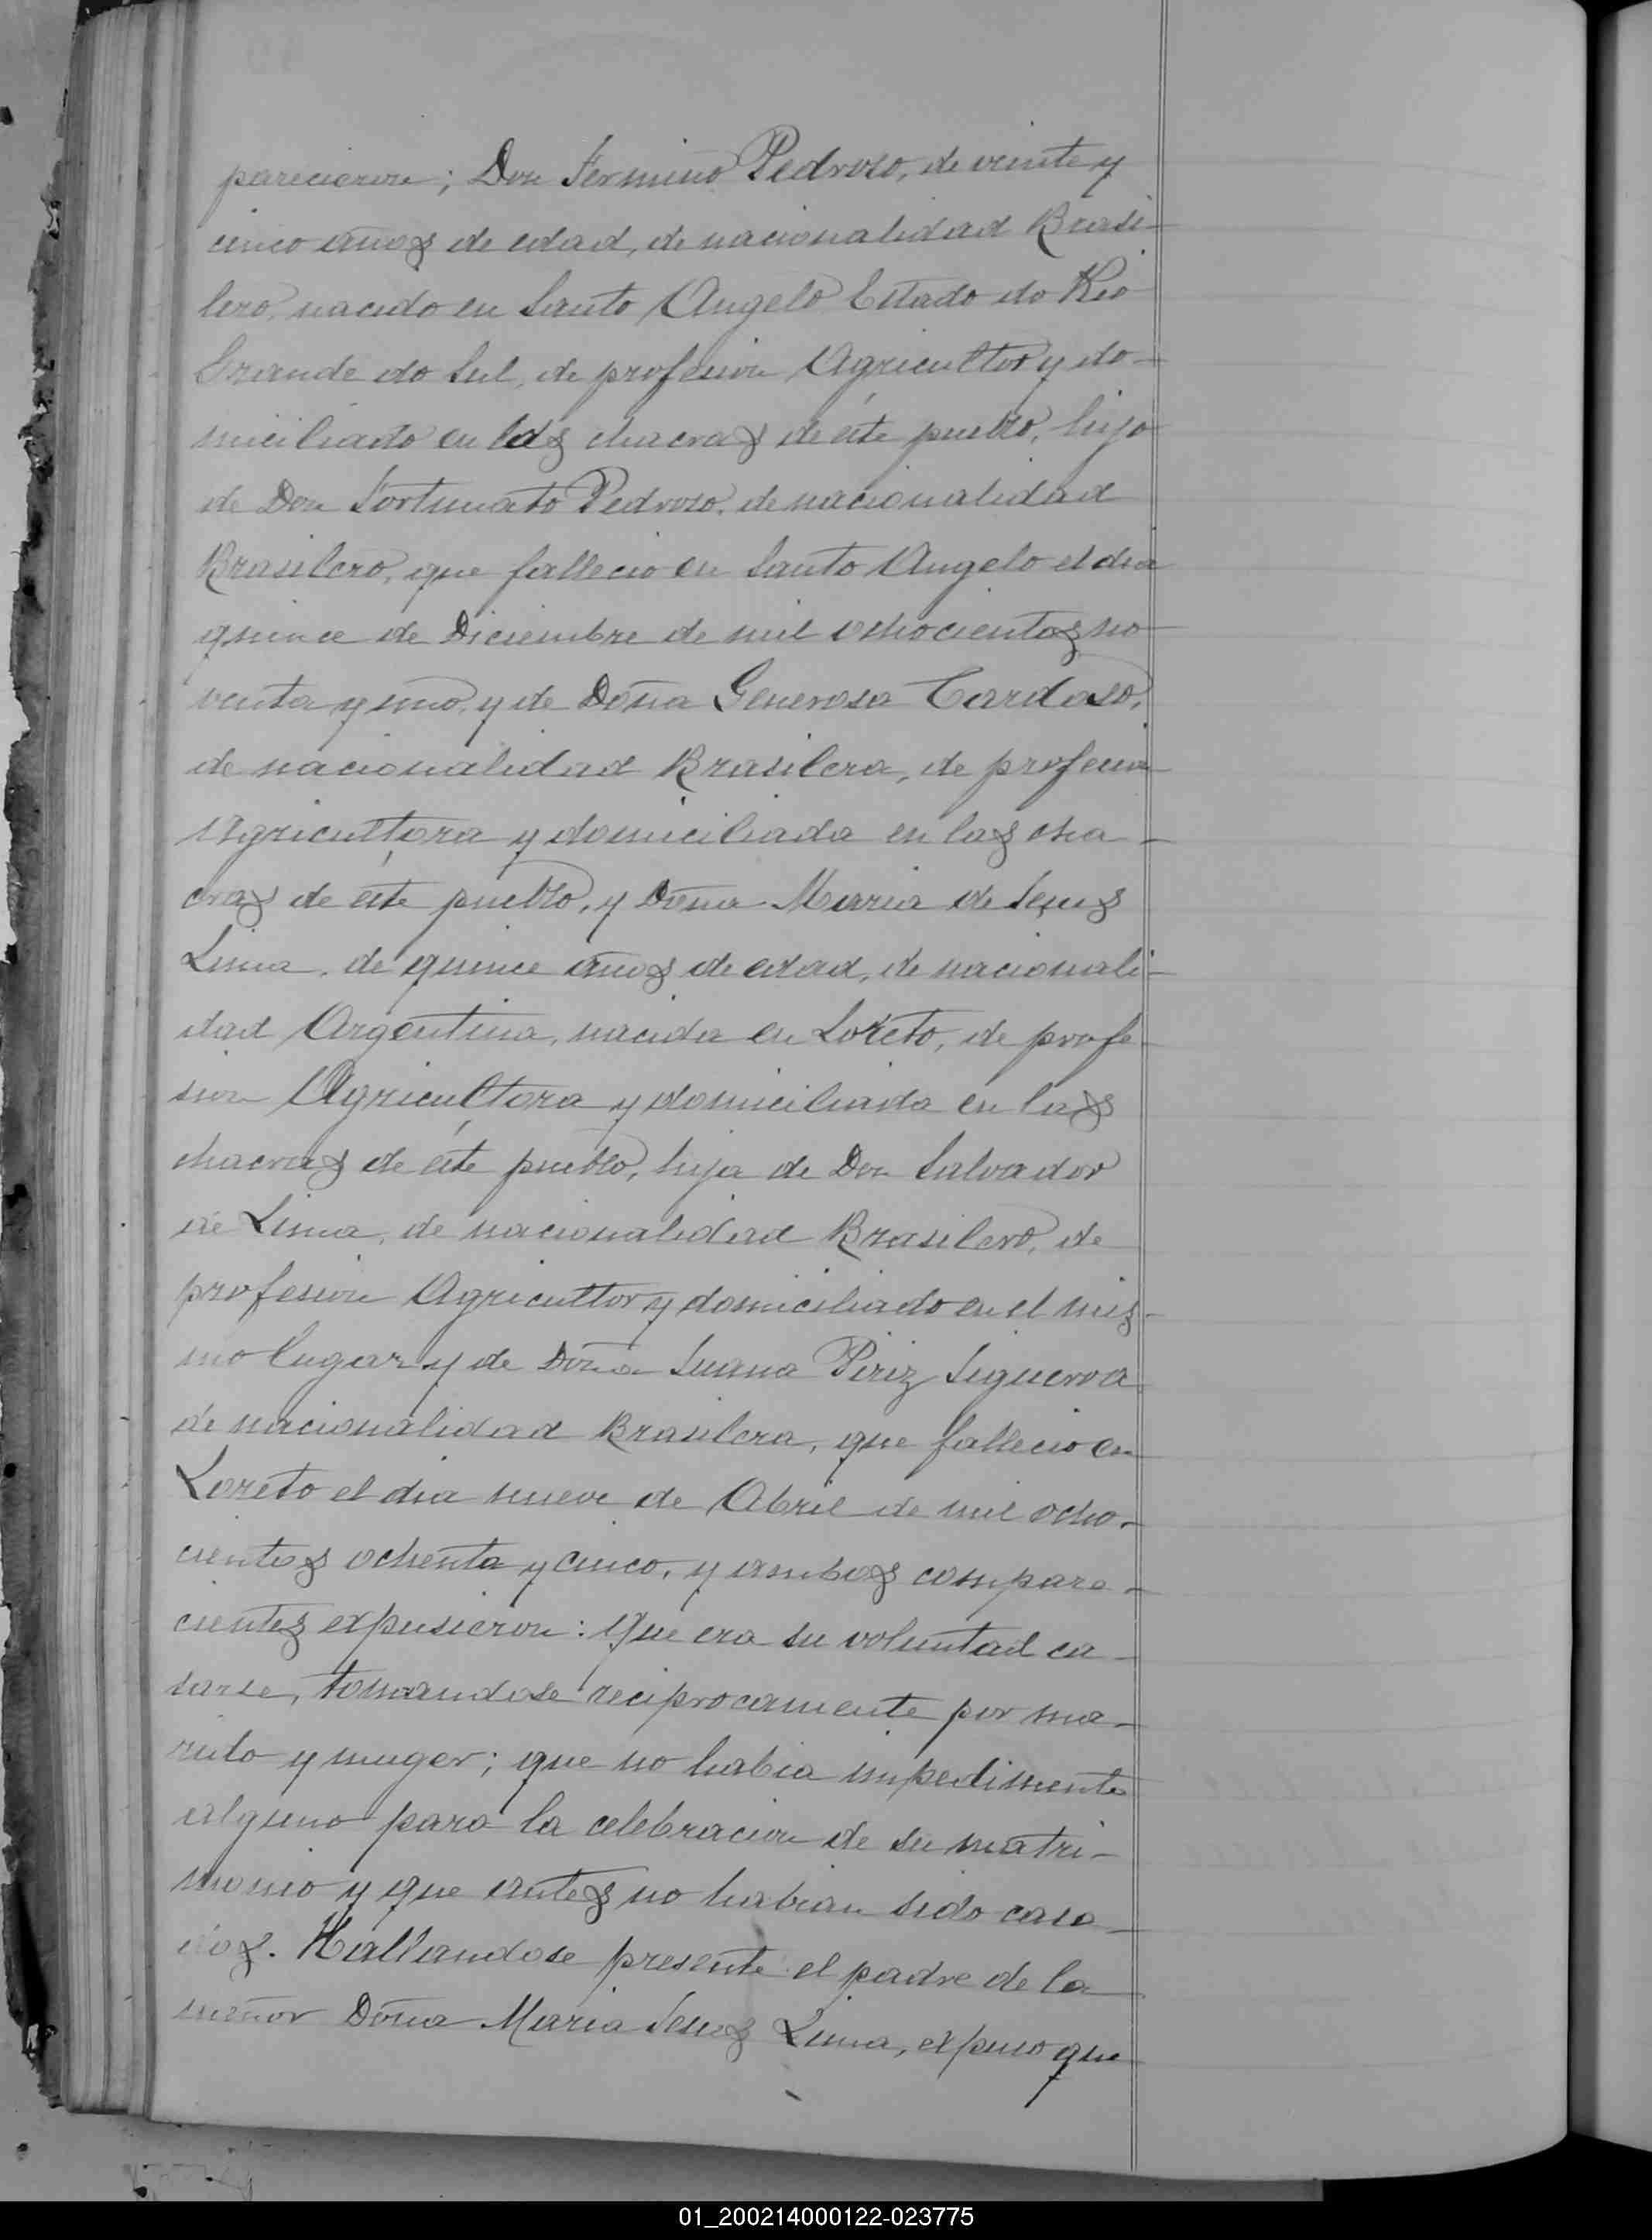 parecieron; Don Fermino Pedroso, de veinte y
cinco años de edad, de nacionalidad Brasi-
lero, nacido en Santo Angelo Estado do Rio
Grande do Sul, de profesion Agricultor y do-
miciliado en las chacras de éste pueblo, hijo
de Don Fortunato Pedroso, de nacionalidad
Brasilero, que fallecio en Santo Angelo el dia
quince de Diciembre de mil ochocientos no-
venta y uno, y de Doña Generosa Cardoso,
de nacionalidad Brasilera, de profesion
Agricultora y domiciliada en las cha-
cras de éste pueblo, y Doña Maria de Jesus
Lima, de quince años de edad, de nacionali-
dad Argentina, nacida en Loreto, de profe-
sion Agricultora y domiciliada en las
chacras de éste pueblo, hija de Don Salvador
de Lima, de nacionalidad Brasilero, de
profesion Agricultor y domiciliado en el mis-
mo lugar y de Doña Juana Piriz Sigueroa
de nacionalidad Brasilera, que fallecio en
Loreto el dia nueve de Abril de mil ocho-
cientos ochenta y cinco, y ambos compare-
cientes expusieron: Que era su voluntad ca-
sarse, tomandose reciprocamente por ma-
rido y muger; que no habia impedimento
alguno para la celebracion de su matri-
monio y que antes no habian sido casa-
dos. Hallandose presente el padre de la
menor Doña Maria Jesus Lima, expuso que
01_200214000122-023775